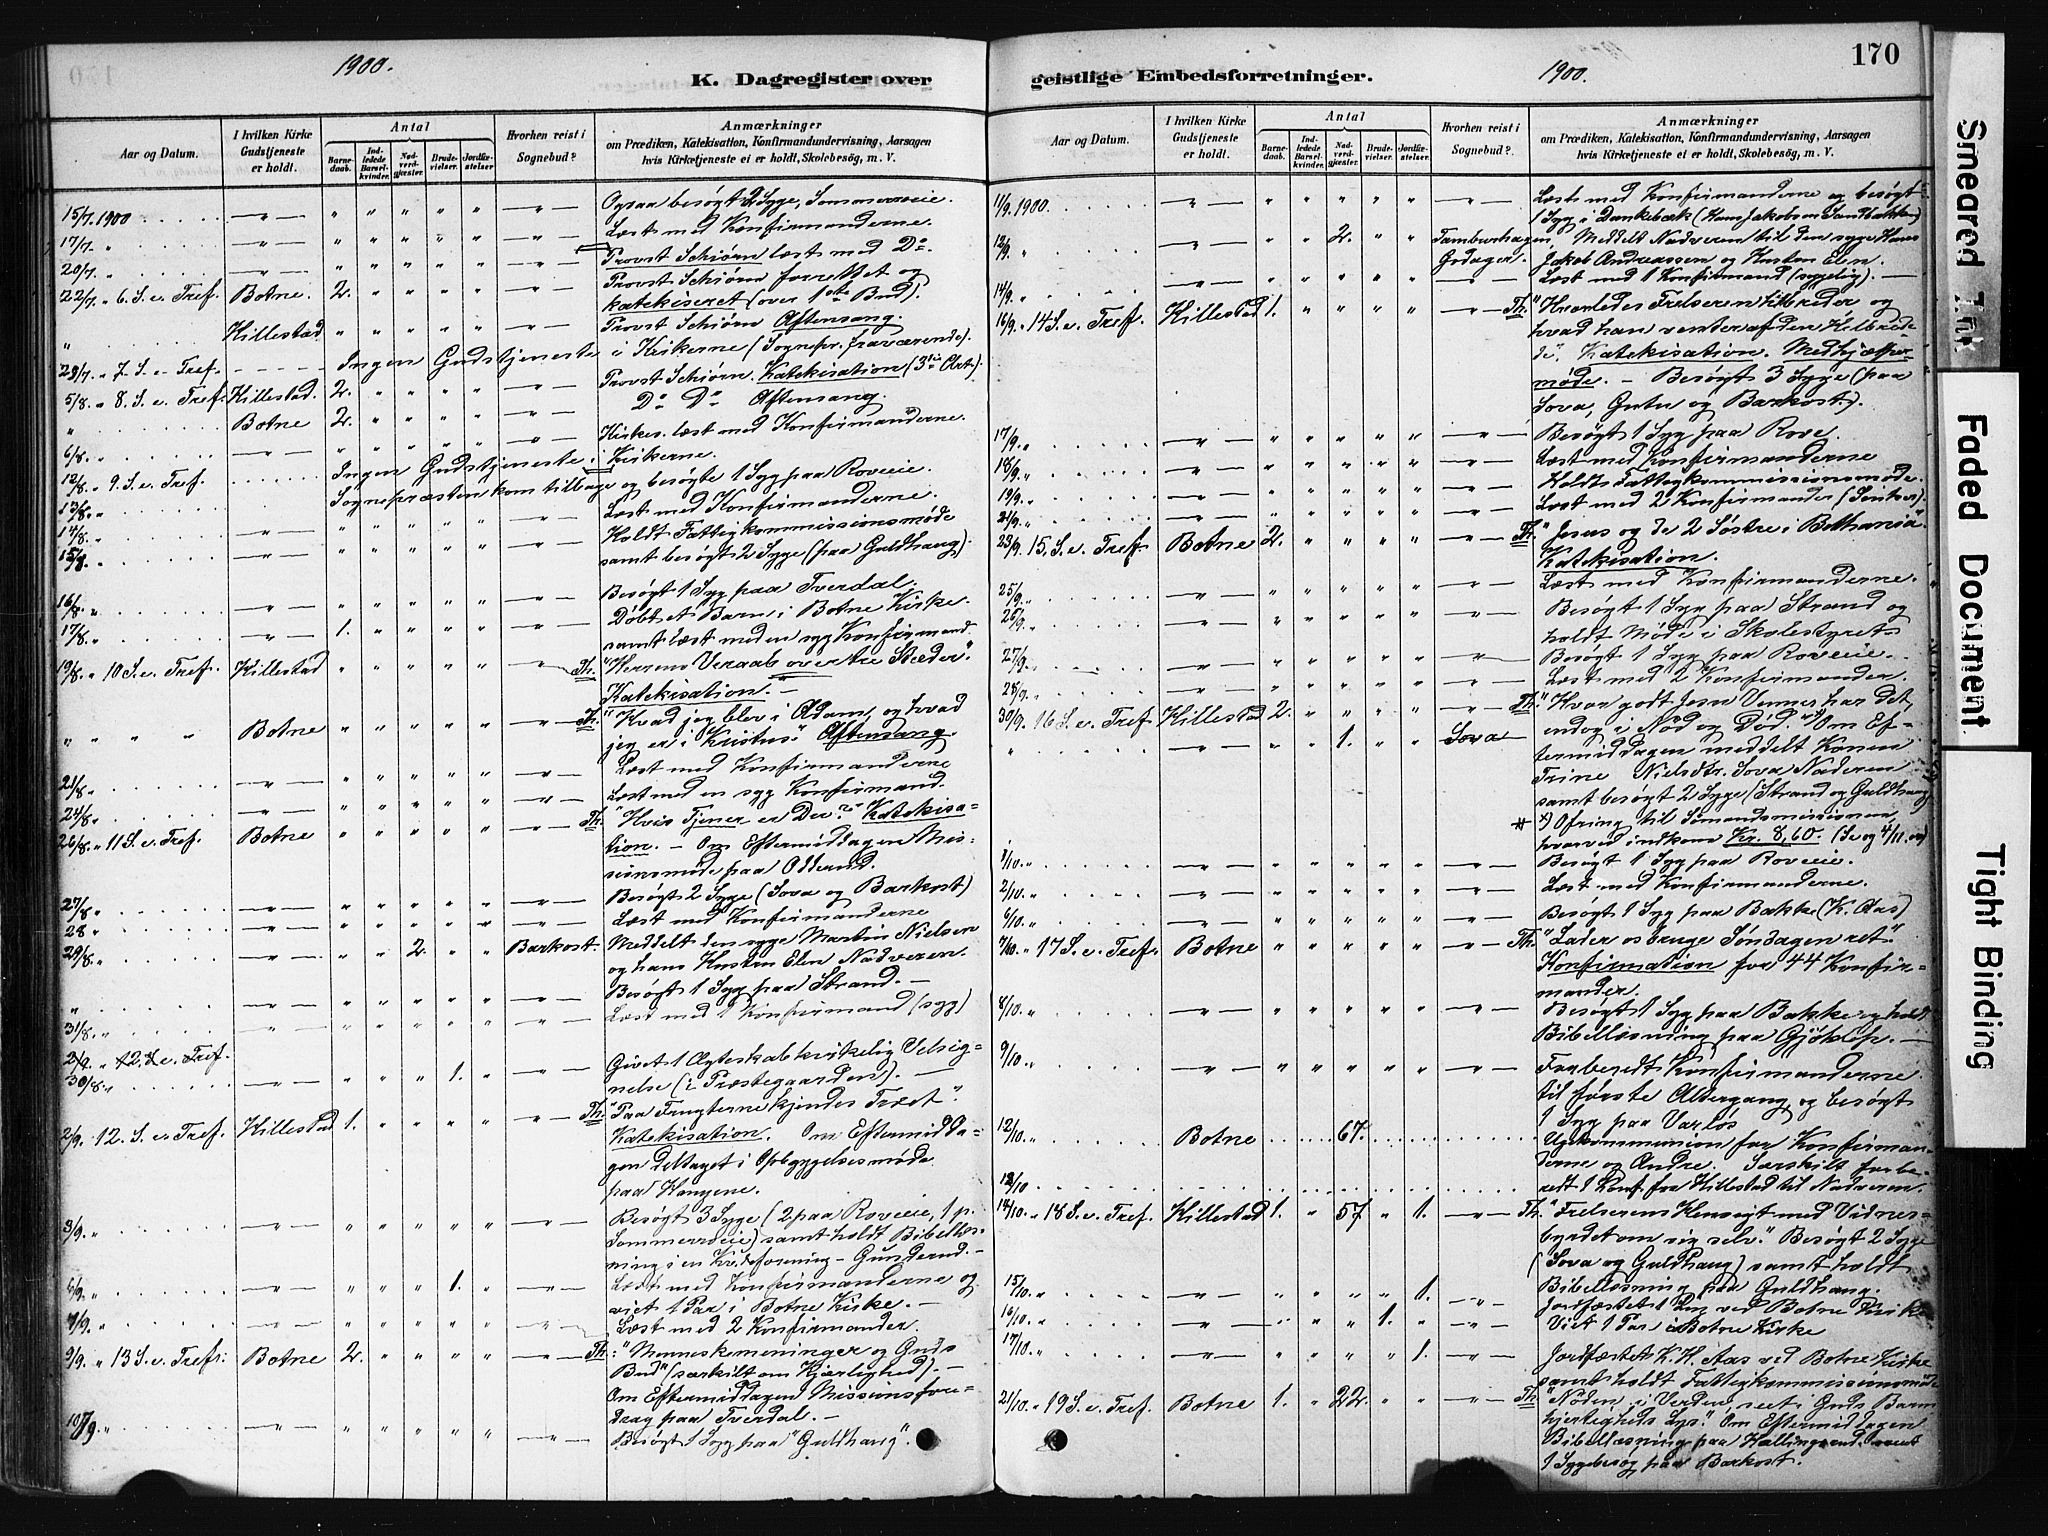 1900.
K. Dagregister over
Aar og Datum.
I hvilken Kirke Gudstjeneste er holdt.
Antal
Barnedaab.
Indledede Barselkvinder.
Nadverdgjæster.
Brudevielser.
Jordfæstelser.
Hvorhen reist i Sognebud?
Anmærkninger
om Prædiken, Katekisation, Konfirmandundervisning, Aarsagen
hvis Kirketjeneste ei er holdt, Skolebesøg, m. V.
15/7. 1900 — " — " " " " " — " — Ogsaa besøgt 2 Syge,
17/7. " — " — " " " " " — " — Læst med Konfirmanderne.
20/7. " " " " " " — " — Provst Schiørn læst med Do.
22/7. " 6. S. e. Tref. Botne. 2. " " " " — " — Provst Schiørn forrettet og
katekiseret (over 1ste Bud).
" Hillestad " " " " " — " — Provst Schiørn Aftensang.
29/7. " 7. S. e. Tref. Ingen Gudstjeneste i Kirkerne (Sognepr. fraværende).
5/8. " 8. S. e. Tref. Hillestad. 2. " " " " — " — Provst Schiørn. Katekisation (3die Art).
" Botne 2. " " " " — " — Do Do Aftensang.
6/8. " — " — " " " " " — " — Kirkes. læst med Konfirmanderne.
12/8. " 9. S. e. Tref. Ingen Gudstjeneste i Kirkerne.
13/8. " Sognepræsten kom tilbage og besøgte 1 Syg paa Roveie.
14/8. " — " — " " " " " — " — Læst med Konfirmanderne.
15/8. " — " — " " " " " — " — Holdt Fattigkommissionsmøde
samt besøgt 2 Syge (paa Guldhaug).
16/8. " — " — " " " " " — " — Besøgt 1 Syg paa Tverdal.
17/8. " — " — 1. " " " " — " — Døbt et Barn i Botne Kirke.
samt læst med en syg Konfirmand.
19/8. " 10 S. e. Tref. Hillestad " " " " " — " — Th. "Herrens Veraab over tre Stæder".
Katekisation. —
" " " " Botne " " " " " — " — Th: "Hvad jeg blev i Adam, og hvad
jeg er i Kristus." Aftensang.
21/8. " — " — " " " " " — " — Læst med Konfirmanderne
24/8. " — " — " " " " " — " — Læst med en syg Konfirmand.
26/8. " 11 S. e. Tref. Botne " " " " " — " — Th: "Hvis Tjener er Der?" Katekisa-
tion. — Om Eftermiddagen Mis-
sionsmøde paa
27/8. " — " — " " " " " — " — Besøgt 2 Syge (Sova og Barkost)
28 " — " — " " " " " — " — Læst med Konfirmanderne
29/8. " — " — " " 2. " " Barkost. Meddelt den syge Martin Nielsen
og hans Hustru Elen Nadveren.
" — " — " " " " " — " — Besøgt 1 Syg paa Strand. —
31/8. " — " — " " " " " — " — Læst med 1 Konfirmand (syg)
2/9. " 12. S. e. Tref.
30/8. " — " — " " " 1. " — " — Givet 1 Ægteskab kirkelig Velsig-
nelse (i Præstegaarden). —
2/9. 12. S. e. Tref. Hillestad 1. " " " " — " — Th. "Paa Frugterne kjendes Træet".
Katekisation. Om Eftermidda-
gen deltaget i Opbyggelsesmøde
paa Haugene.
3/9. " — " — " " " " " — " — Besøgt 3 Syge (2 paa Roveie, 1 p.
Sommerroeie) samt holdt Bibellæs-
ning i en Kv.deforening —
6/9. " — " — " " " 1. " — " — Læst med Konfirmanderne og
viet 1 Par i Botne Kirke. —
7/9. " — " — " " " " " — " — Læst med 2 Konfirmander.
9/9. " 13 S. e. Tref: Botne 2. " " " " — " — Th: "Menneskemeninger og Guds
Bud" (særkilt om Kjærlighed). —
Om Eftermiddagen Missionsfore-
drag paa Tverdal. —
10/9. " — " — " " " " " — " — Besøgt 1 Syg paa "Guldhaug".
geistlige Embedsforretninger.
1900.
170
Aar og Datum.
I hvilken Kirke Gudstjeneste er holdt.
Antal
Barnedaab.
Indledede Barselkvinder.
Nadverdgjæster.
Brudevielser.
Jordfæstelser.
Hvorhen reist i Sognebud?
Anmærkninger
om Prædiken, Katekisation, Konfirmandundervisning, Aarsagen
hvis Kirketjeneste ei er holdt, Skolebesøg, m. V.
11/9. 1900. — " — " " " " " — " — Læst med Konfirmanderne og besøgt
1 Syg i Dankebæk (Hans Jakobsen Sandbakken)
12/9. " — " — " " 2. " " Tamburhagen, Meddelt Nadveren til den syge Hans
Godager. Jakob Andreassen og Hustru Elen.
14/9. " — " — " " " " " — " — Læst med 1 Konfirmand (sygelig). —
16/9. " 14 S. e. Tref. Hillestad 1. " " " " — " — Th: "Hvorledes Frelseren helbreder og
hvad han venter af den Helbrede-
de". Katekisation. Medhjælper-
møde. — Besøgt 3 Syge (paa
Sova, og Barkost.).
17/9. " — " — " " " " " — " — Besøgt 1 Syg paa Rove.
18/9. " — " — " " " " " — " — Læst med Konfirmanderne
19/9. " — " — " " " " " — " — Holdt Fattigkommissionsmøde.
21/9. " — " — " " " " " — " — Læst med 2 Konfirmander
23/9. 15. S. e. Tref. Botne 2. " " " " — " — Th: "Jesus og de 2 Søstre i Bethania".
Katekisation.
25/9. " — " — " " " " " — " — Læst med Konfirmanderne.
26/9. " — " — " " " " " — " — Besøgt 1 Syg paa Strand og
holdt Møde i Skolestyret.
27/9. " — " — " " " " " — " — Besøgt 1 Syg paa Roveie.
28/9. " — " — " " " " " — " — Læst med 2 Konfirmander.
30/9. " 16 S. e. Tref. Hillestad 2. " " " " — " — Th: "Hvor godt Jesu Venner har det,
endog i Nød og Død." x) Om Ef-
" — " — " " 1. " " Sova termiddagen meddelt Konen
Trine Nielsdtr. Sova Naderen
samt besøgt 2 Syge (Strand og Guldhaug)
# x) Ofring til Sømandsmissionen,
hvorved indkom Kr. 8,60. (Se og 4/11.
1/10. " — " — " " " " " — " — Besøgt 1 Syg paa Roveie.
2/10. " — " — " " " " " — " — Læst med Konfirmanderne.
6/10. " — " — " " " " " — " — Besøgt 1 Syg paa Bakke (K. Aas)
7/10. " 17 S. e. Tref. Botne " " " " " — " — Th: "Lader os bruge Søndagen ret."
Konfirmation for 44 Konfir-
mander.
8/10. " — " — " " " " " — " — Besøgt 1 Syg paa Bakke og holdt
Bibellæsning paa Gjøklep. —
9/10. " — " — " " " " " — " — Forberedt Konfirmanderne
til første Altergang, og besøgt
1 Syg paa Varløs
12/10. " Botne 67. Ugekommunion for Konfirman-
derne og Andre. Særskilt forbe-
13/10. redt 1 Konf. fra Hillestad til Nadveren.
14/10. " 18 S. e. Tref. Hillestad 1. " 57. " 1. — " — Th: "Frelserens Hensigt med Vidnes-
byrdet om sig selv." Besøgt 2 Syge
(Sova og Guldhaug) samt holdt
Bibellæsning paa Guldhaug.
15/10. " — " — " " " " 1. — " — Jordfæstet 1 Lig ved Botne Kirke
16/10. " — " — " " " 1. " — " — Viet 1 Par i Botne Kirke
17/10. " — " — " " " " 1. — " — Jordfæstet K. H. Aas ved Botne Kirke
samt holdt Fattigkommissionsmøde
21/10. " 19 S. e. Tref. Botne 1. " 22. " " — " — Th: "Nøden i Verden, seet i Guds Barm-
hjertigheds Lys." Om Eftermiddagen
Bibellæsning paa samt
1 Sygebesøg paa Barkost.
Smeared Ink
Faded Document
Tight Binding